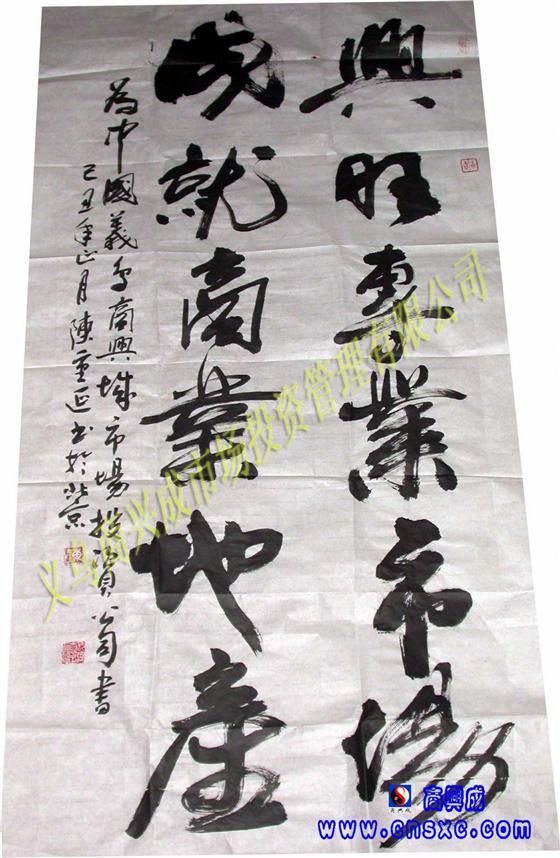 興旺專業市場
成就商業地產
為中國義烏商興城市場投資公司書
己丑年正月陳重延书於北京
义乌商兴成市场投资管理有限公司
商興成
商興成
www.cnsxc.com